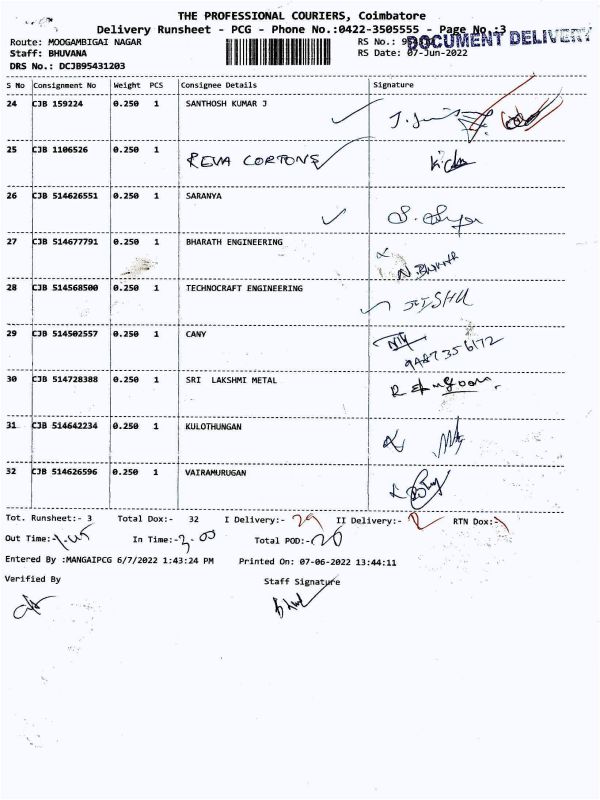 THE PROFESSIONAL COURIERS, Coimbatore
Delivery Runsheet - PCG - Phone No.:0422-3505555 - Page No.:3
DOCUMENT DELIVERY
Route: MOOGAMBIGAI NAGAR RS No.:
Staff: BHUVANA RS Date: 07-Jun-2022
DRS No.: DCJB95431203
S No Consignment No Weight PCS Consignee Details Signature
24 CJB 159224 0.250 1 SANTHOSH KUMAR J
25 CJB 1106526 0.250 1 REVA CORTONS
26 CJB 514626551 0.250 1 SARANYA
27 CJB 514677791 0.250 1 BHARATH ENGINEERING
28 CJB 514568500 0.250 1 TECHNOCRAFT ENGINEERING JISHU
29 CJB 514502557 0.250 1 CANY
9487356172
30 CJB 514728388 0.250 1 SRI LAKSHMI METAL
31 CJB 514642234 0.250 1 KULOTHUNGAN
32 CJB 514626596 0.250 1 VAIRAMURUGAN
Tot. Runsheet:- 3 Total Dox:- 32 I Delivery:- 29 II Delivery:- 2 RTN Dox:-1
Out Time:- In Time:- Total POD:-
Entered By :MANGAIPCG 6/7/2022 1:43:24 PM Printed On: 07-06-2022 13:44:11
Verified By Staff Signature